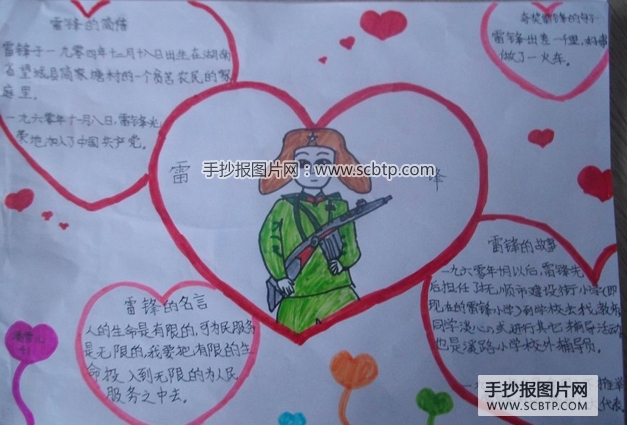 雷锋的简借
雷锋于一九零四年十二月十八日出生在湖南
省望城县简家塘村的一个贫苦农民的家
庭里。
一九六零年十一月八日,雷锋光
荣地加入了中国共产党。
夸奖雷锋的句子
雷锋出差一千里,好事
做了一火车。
雷 锋
手抄报图片网——www.scbtp.com
雷锋的名言
人的生命是有限的,可为民服务
是无限的,我要把有限的生
命投入到无限的为人民
服务之中去。
雷锋的故事
一九六零年10月以后,雷锋先
后担任了抚顺市建设街小学(即
现在的雷锋小学)
同学谈心式进行其它辅导活动
也是溪路小学校外辅导员。
手抄报图片网
WWW.SCBTP.COM
代表